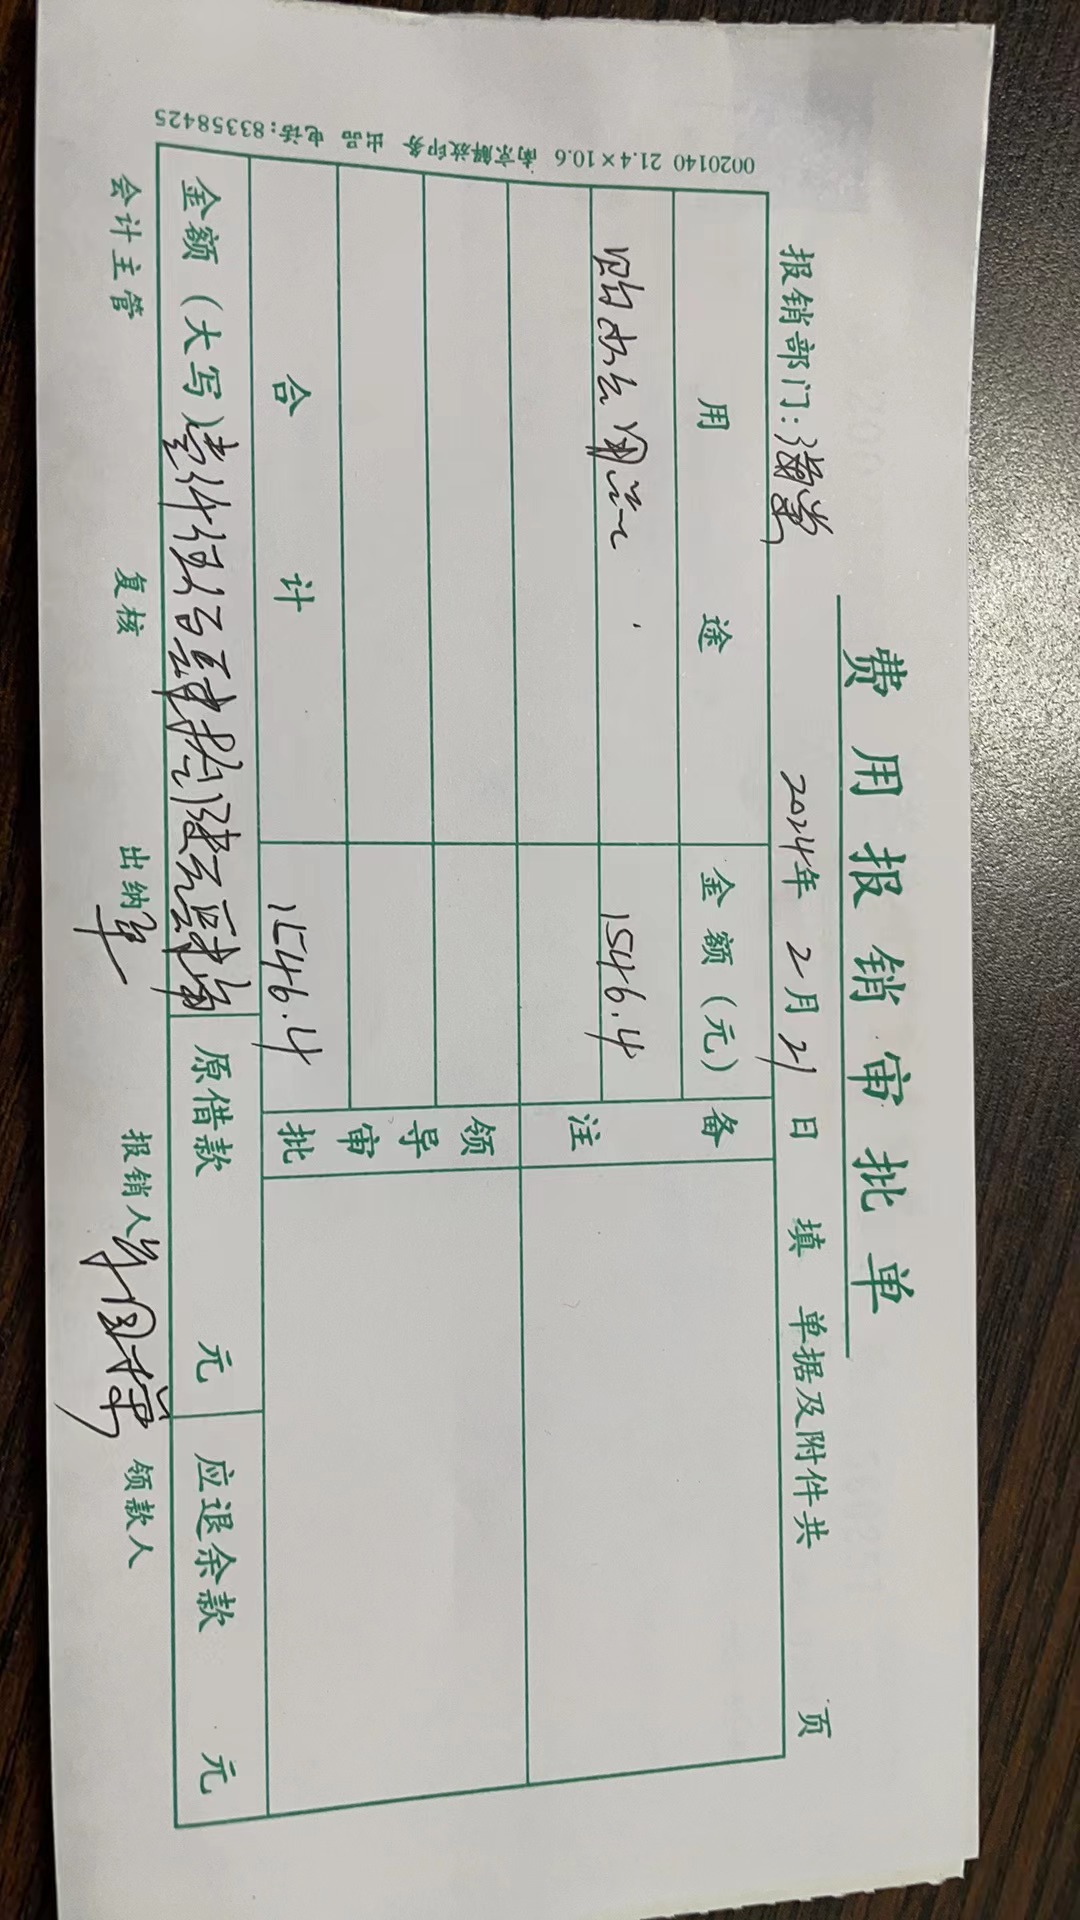 费用报销审批单
报销部门: 2024年 2月 21日 填 单据及附件共 页
用途 金额(元) 备注
购办公用品 1546.4
领导审批
合计 1546.4
金额(大写)壹仟伍佰肆拾陆元肆角 原借款 元 应退余款 元
会计主管 复核 出纳 报销人 领款人
0020140 21.4×10.6 南京解放印务 出品 电话:83358425